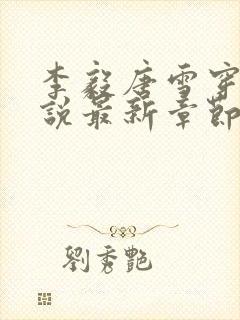 李毅唐雪穿
說最新章節
劉秀艷